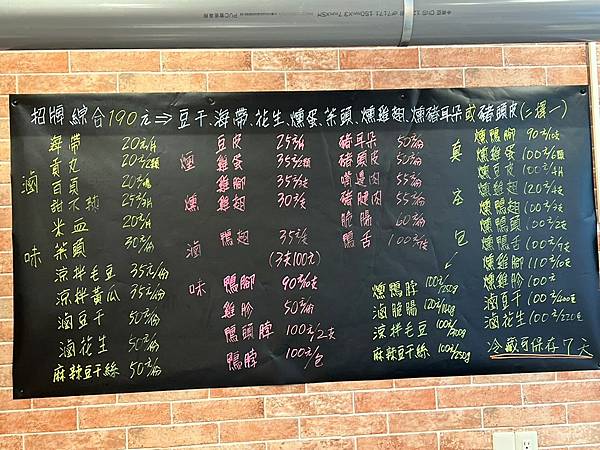 招牌綜合190元⇒豆干、海帶、花生、燻蛋、菜頭、燻雞翅、燻豬耳朵或豬頭皮(二擇一)
滷味
海帶 20元/片
貢丸 20元/2顆
百頁 20元/塊
甜不辣 25元/片
米血 20元/片
菜頭 30元/份
涼拌毛豆 35元/份
涼拌黃瓜 35元/份
滷豆干 50元/份
滷花生 50元/份
麻辣豆干絲 50元/份
煙燻滷味
豆皮 25元/片
雞蛋 35元/2顆
雞腳 35元/2支
雞翅 30元/支
鴨翅 35元/支
(3支100元)
鴨腳 90元/10支
雞胗 50元/份
鴨頭脖 100元/2支
鴨脖 100元/包
豬耳朵 50元/份
豬頭皮 50元/份
嘴邊肉 55元/份
豬腱肉 55元/份
脆腸 60元/份
鴨舌 100元/份
真空包
燻鴨腳 90元/10支
燻雞蛋 100元/6顆
燻豆皮 100元/4片
燻雞翅 120元/4支
燻鴨翅 100元/3支
燻鴨頭 100元/2支
燻鴨舌 100元/7支
燻雞腳 110元/10支
燻雞胗 100元
滷豆干 100元/400g
滷花生 100元/220g
燻鴨脖 100元/250g
滷脆腸
涼拌毛豆 100元/400g
麻辣豆干絲 100元/250g
冷藏可保存7天